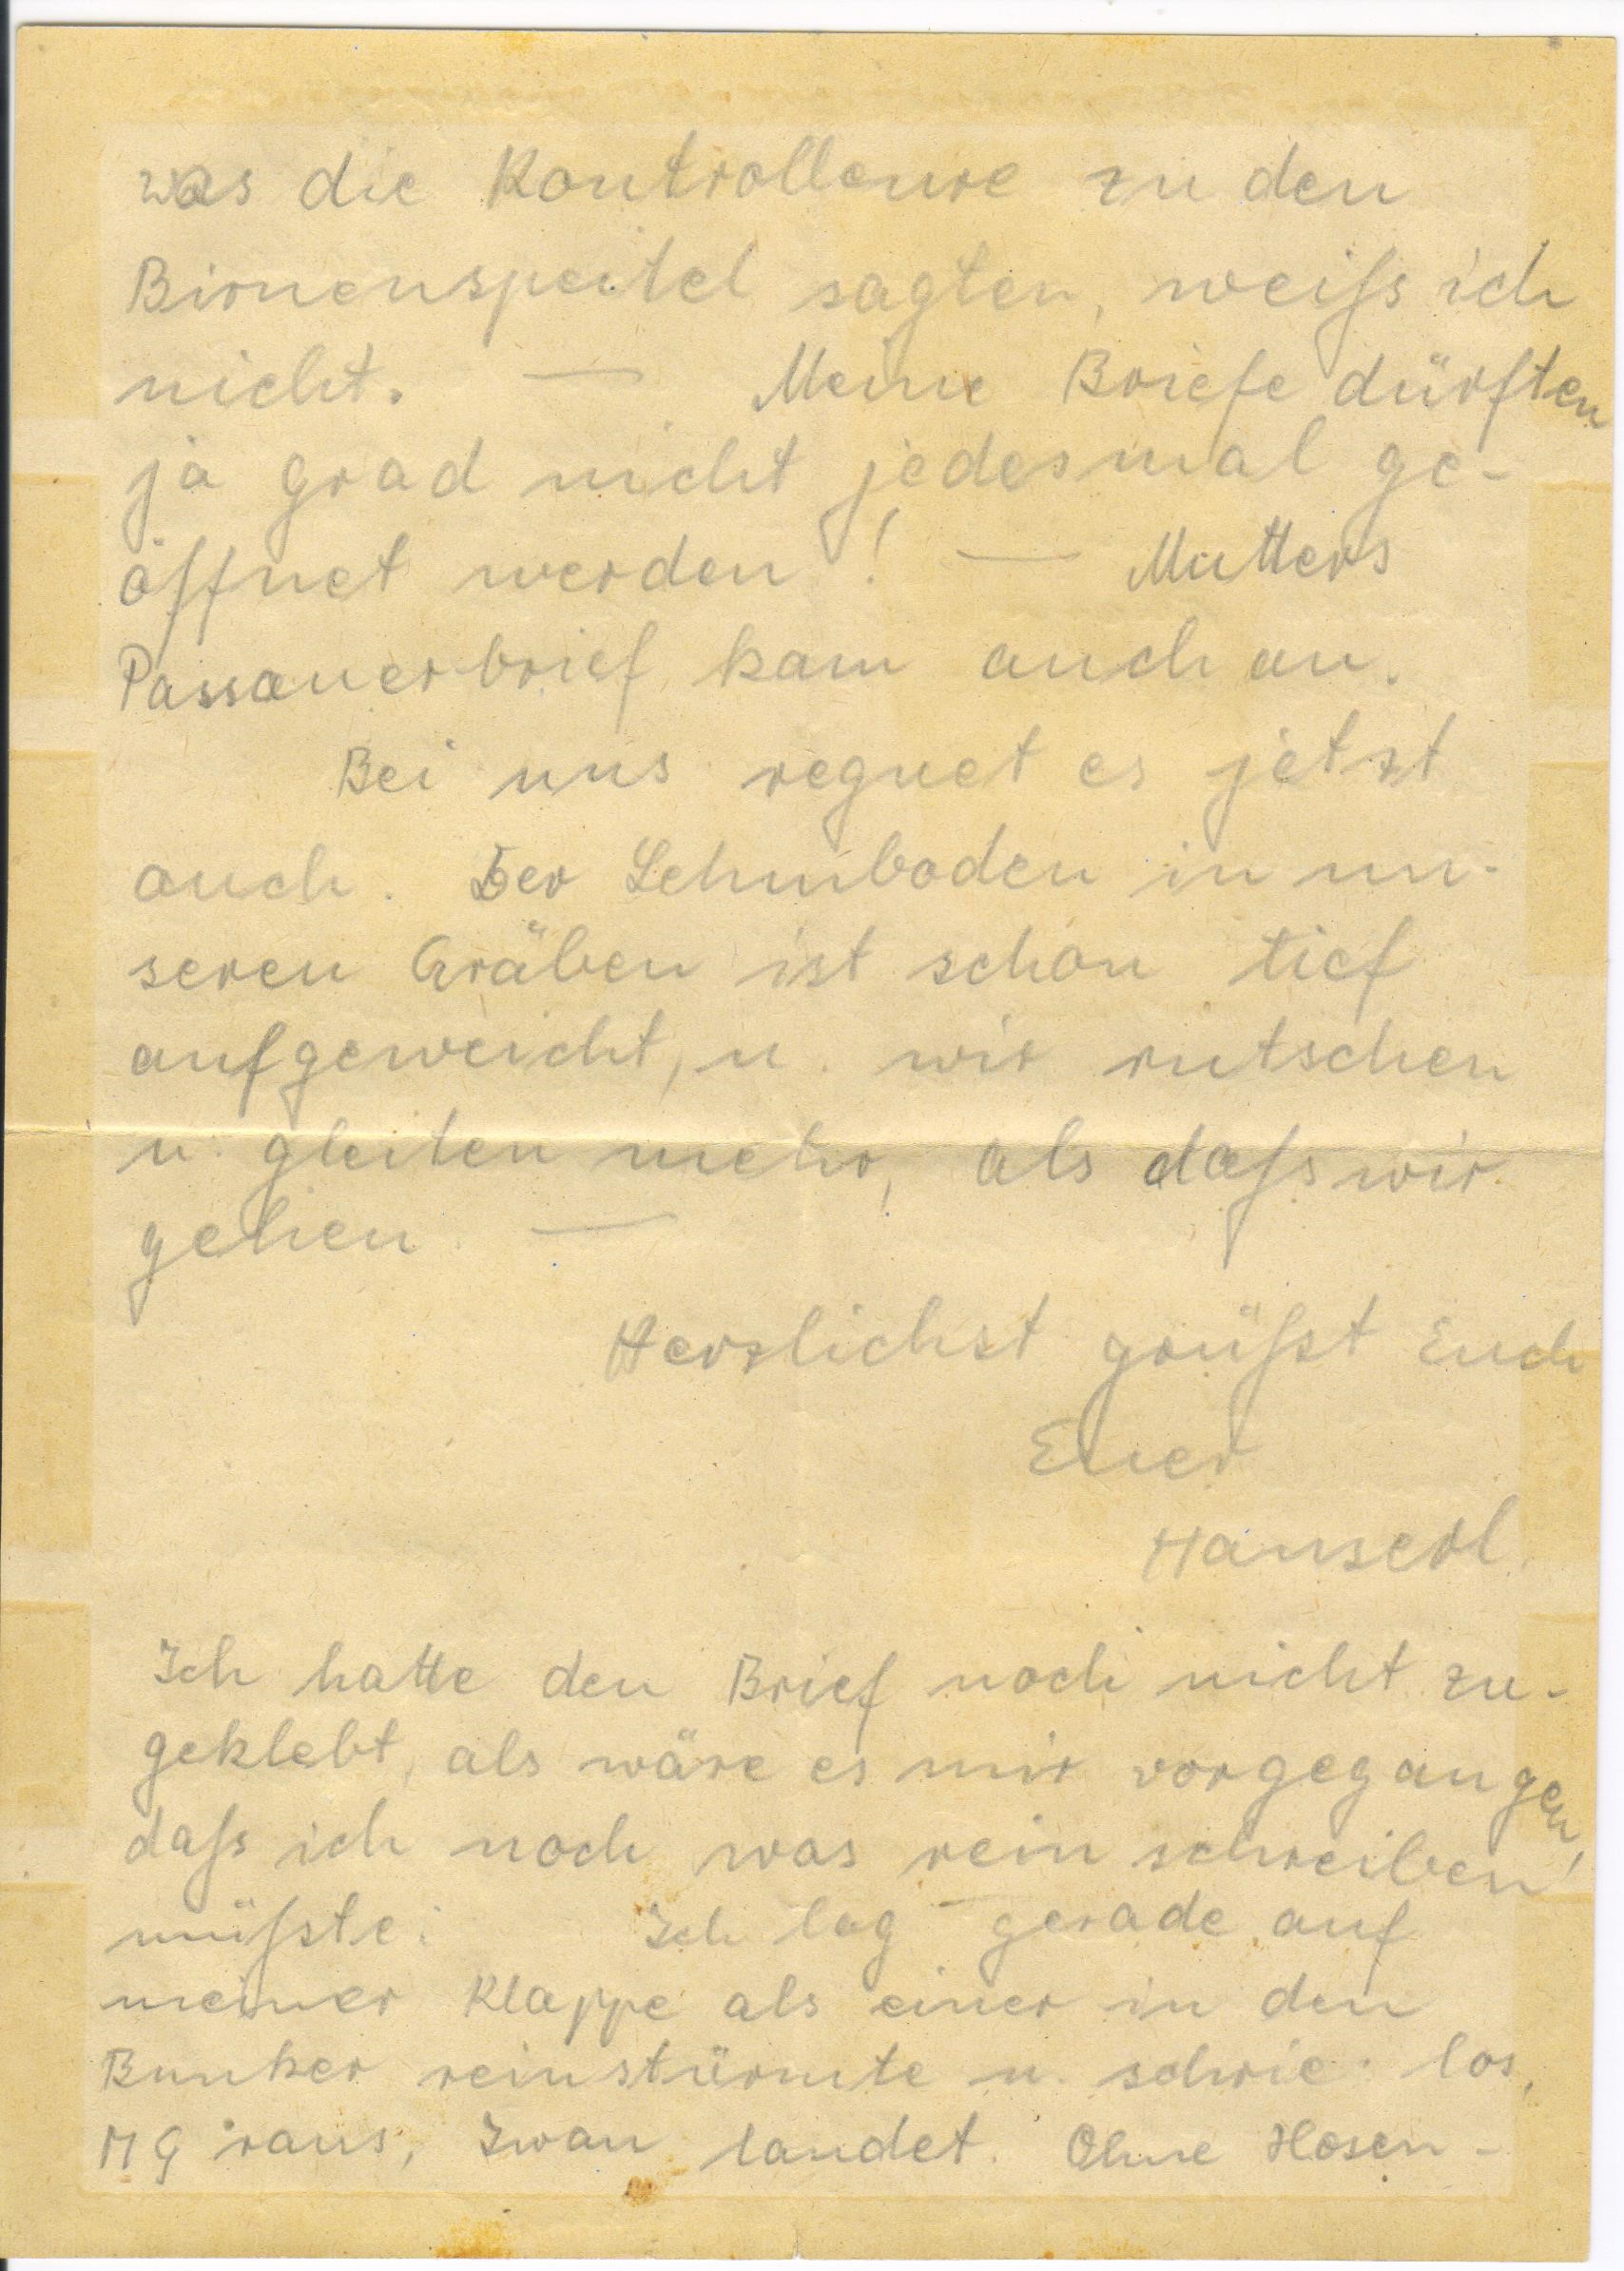 was die Kontrolleure zu den
Birnenspeitel sagten, weiß ich
nicht. — Meine Briefe dürften
ja grad nicht jedesmal ge-
öffnet werden! — Mutters
Passauerbrief kam auch an.
Bei uns regnet es jetzt
auch. Der Lehmboden in un-
seren Gräben ist schon tief
aufgeweicht, u. wir rutschen
u. gleiten mehr, als daß wir
gehen. —
Herzlichst grüßt Euch
Euer
Hanserl.
Ich hatte den Brief noch nicht zu-
geklebt, als wäre es mir vorgegangen,
daß ich noch was rein schreiben
müßte: Ich lag gerade auf
meiner Klappe als einer in den
Bunker reinstürmte u. schrie: los,
MG raus, Iwan landet. Ohne Hosen-